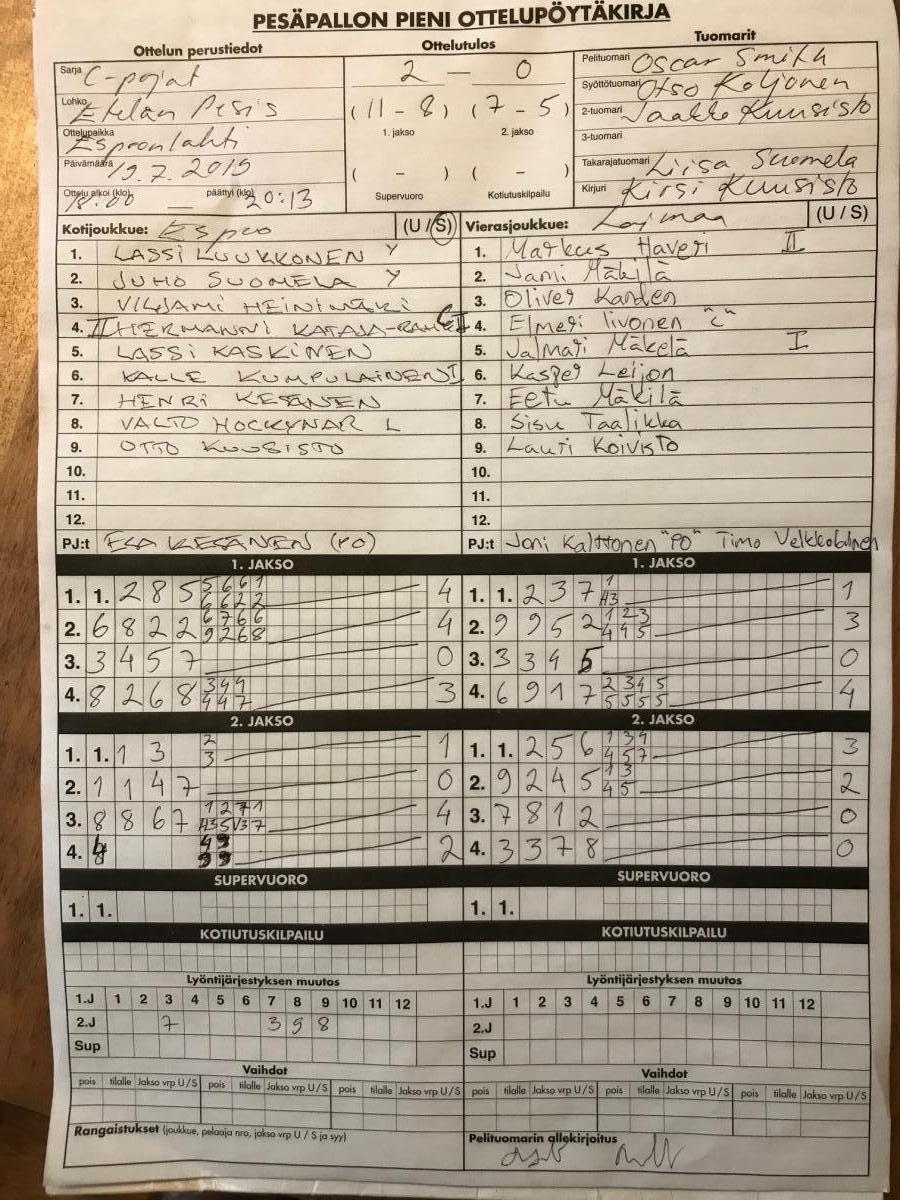 PESÄPALLON PIENI OTTELUPÖYTÄKIRJA
Ottelun perustiedot
Sarja C-pojat
Lohko Etelän Pesis
Ottelupaikka Espoonlahti
Päivämäärä 19.7.2019
Ottelu alkoi (klo) 18:00 päättyi (klo) 20:13
Ottelutulos
2 – 0
(11 - 8) (7 - 5)
1. jakso 2. jakso
( - ) ( - )
Supervuoro Kotiutuskilpailu
Tuomarit
Pelituomari Oscar Smith
Syöttötuomari Otso Koljonen
2-tuomari Jaakko Kuusisto
3-tuomari
Takarajatuomari Liisa Suomela
Kirjuri Kirsi Kuusisto
Kotijoukkue: Espoo (U / S)
1. LASSI LUUKKONEN Y
2. JUHO SUOMELA Y
3. VILJAMI HEINIMÄKI
4. II HERMANNI KATAJA-RAHKO
5. LASSI KASKINEN
6. KALLE KUMPULAINEN I
7. HENRI KESÄNEN
8. VALTO HOCKYNAR L
9. OTTO KUUSISTO
10.
11.
12.
PJ:t ESA KESÄNEN (PO)
Vierasjoukkue: Loimaa (U / S)
1. Markus Haveri II
2. Jami Mäkilä
3. Oliver Kanden
4. Elmeri Iivonen "C"
5. Jalmari Mäkelä I
6. Kasper Leijon
7. Eetu Mäkilä
8. Sisu Taalikka
9. Lauri Koivisto
10.
11.
12.
PJ:t Joni Kalttonen "PO" Timo
1. JAKSO
1. 1. 2 8 5 5 6 6 1 4
6 6 2 2
2. 6 8 2 2 6 7 6 6 4
9 2 6 8
3. 3 4 5 7 0
4. 8 2 6 8 3 4 4 3
4 4 7
1. JAKSO
1. 1. 2 3 7 1 1
H3
2. 9 9 5 2 1 2 3 3
4 4 5
3. 3 3 4 5 0
4. 6 9 1 7 2 3 4 5 4
5 5 5 5
2. JAKSO
1. 1. 1 3 2 1
3
2. 1 1 4 7 0
3. 8 8 6 7 1 2 7 1 4
H3 5 V3 7
4. 2
2. JAKSO
1. 1. 2 5 6 1 3 4 3
4 5 7
2. 9 2 4 5 1 3 2
4 5
3. 7 8 1 2 0
4. 3 3 7 8 0
SUPERVUORO
1. 1.
SUPERVUORO
1. 1.
KOTIUTUSKILPAILU
KOTIUTUSKILPAILU
Lyöntijärjestyksen muutos
1.J 1 2 3 4 5 6 7 8 9 10 11 12
2.J 7 3 9 8
Sup
Lyöntijärjestyksen muutos
1.J 1 2 3 4 5 6 7 8 9 10 11 12
2.J
Sup
Vaihdot
pois tilalle Jakso vrp U/S pois tilalle Jakso vrp U/S pois tilalle Jakso vrp U/S
Vaihdot
pois tilalle Jakso vrp U/S pois tilalle Jakso vrp U/S pois tilalle Jakso vrp U/S
Rangaistukset (joukkue, pelaaja nro, jakso vrp U / S ja syy)
Pelituomarin allekirjoitus